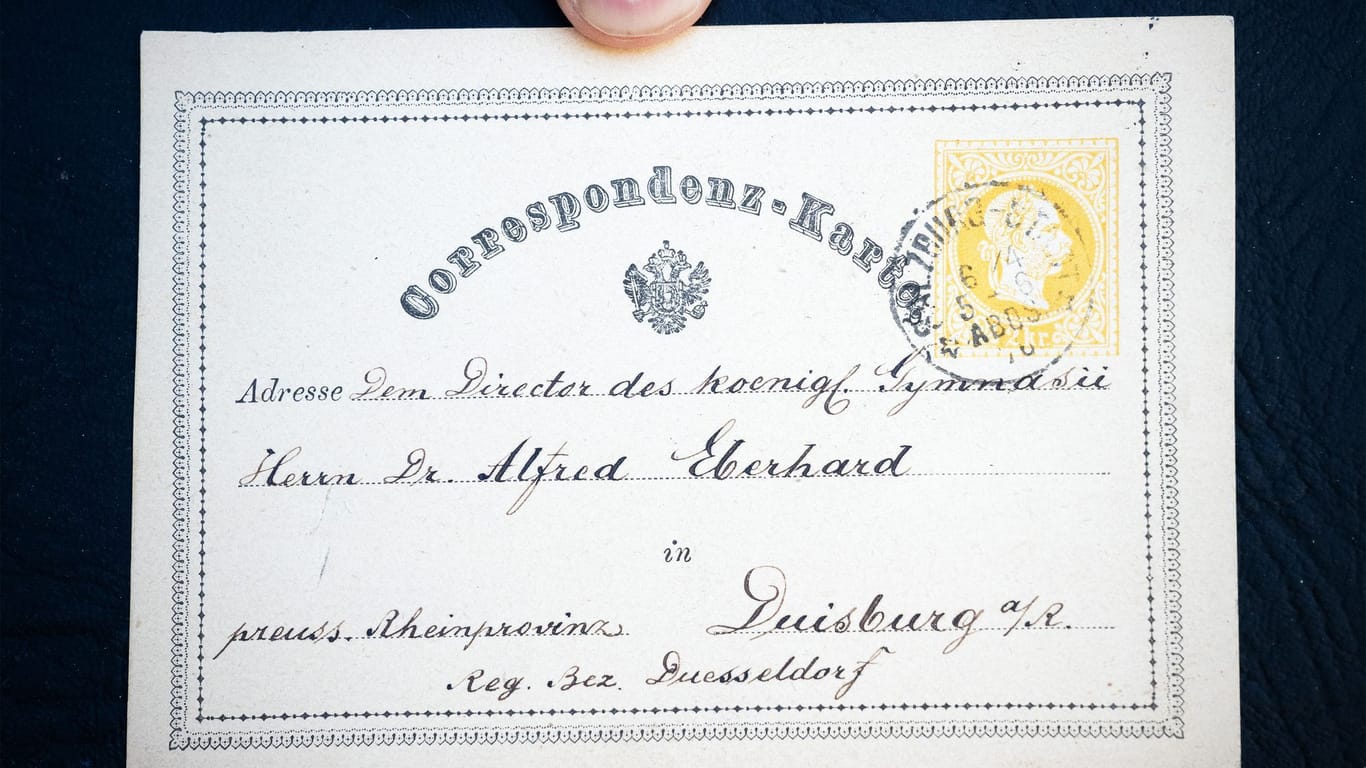 Correspondenz-Karte
SALZBURG-STADT
14
6 6
5 ABDS
70
2 Kr.
Adresse Dem Director des koenigl. Gymnasii
Herrn Dr. Alfred Eberhard
in
preuss. Rheinprovinz Duisburg a/R.
Reg. Bez. Duesseldorf